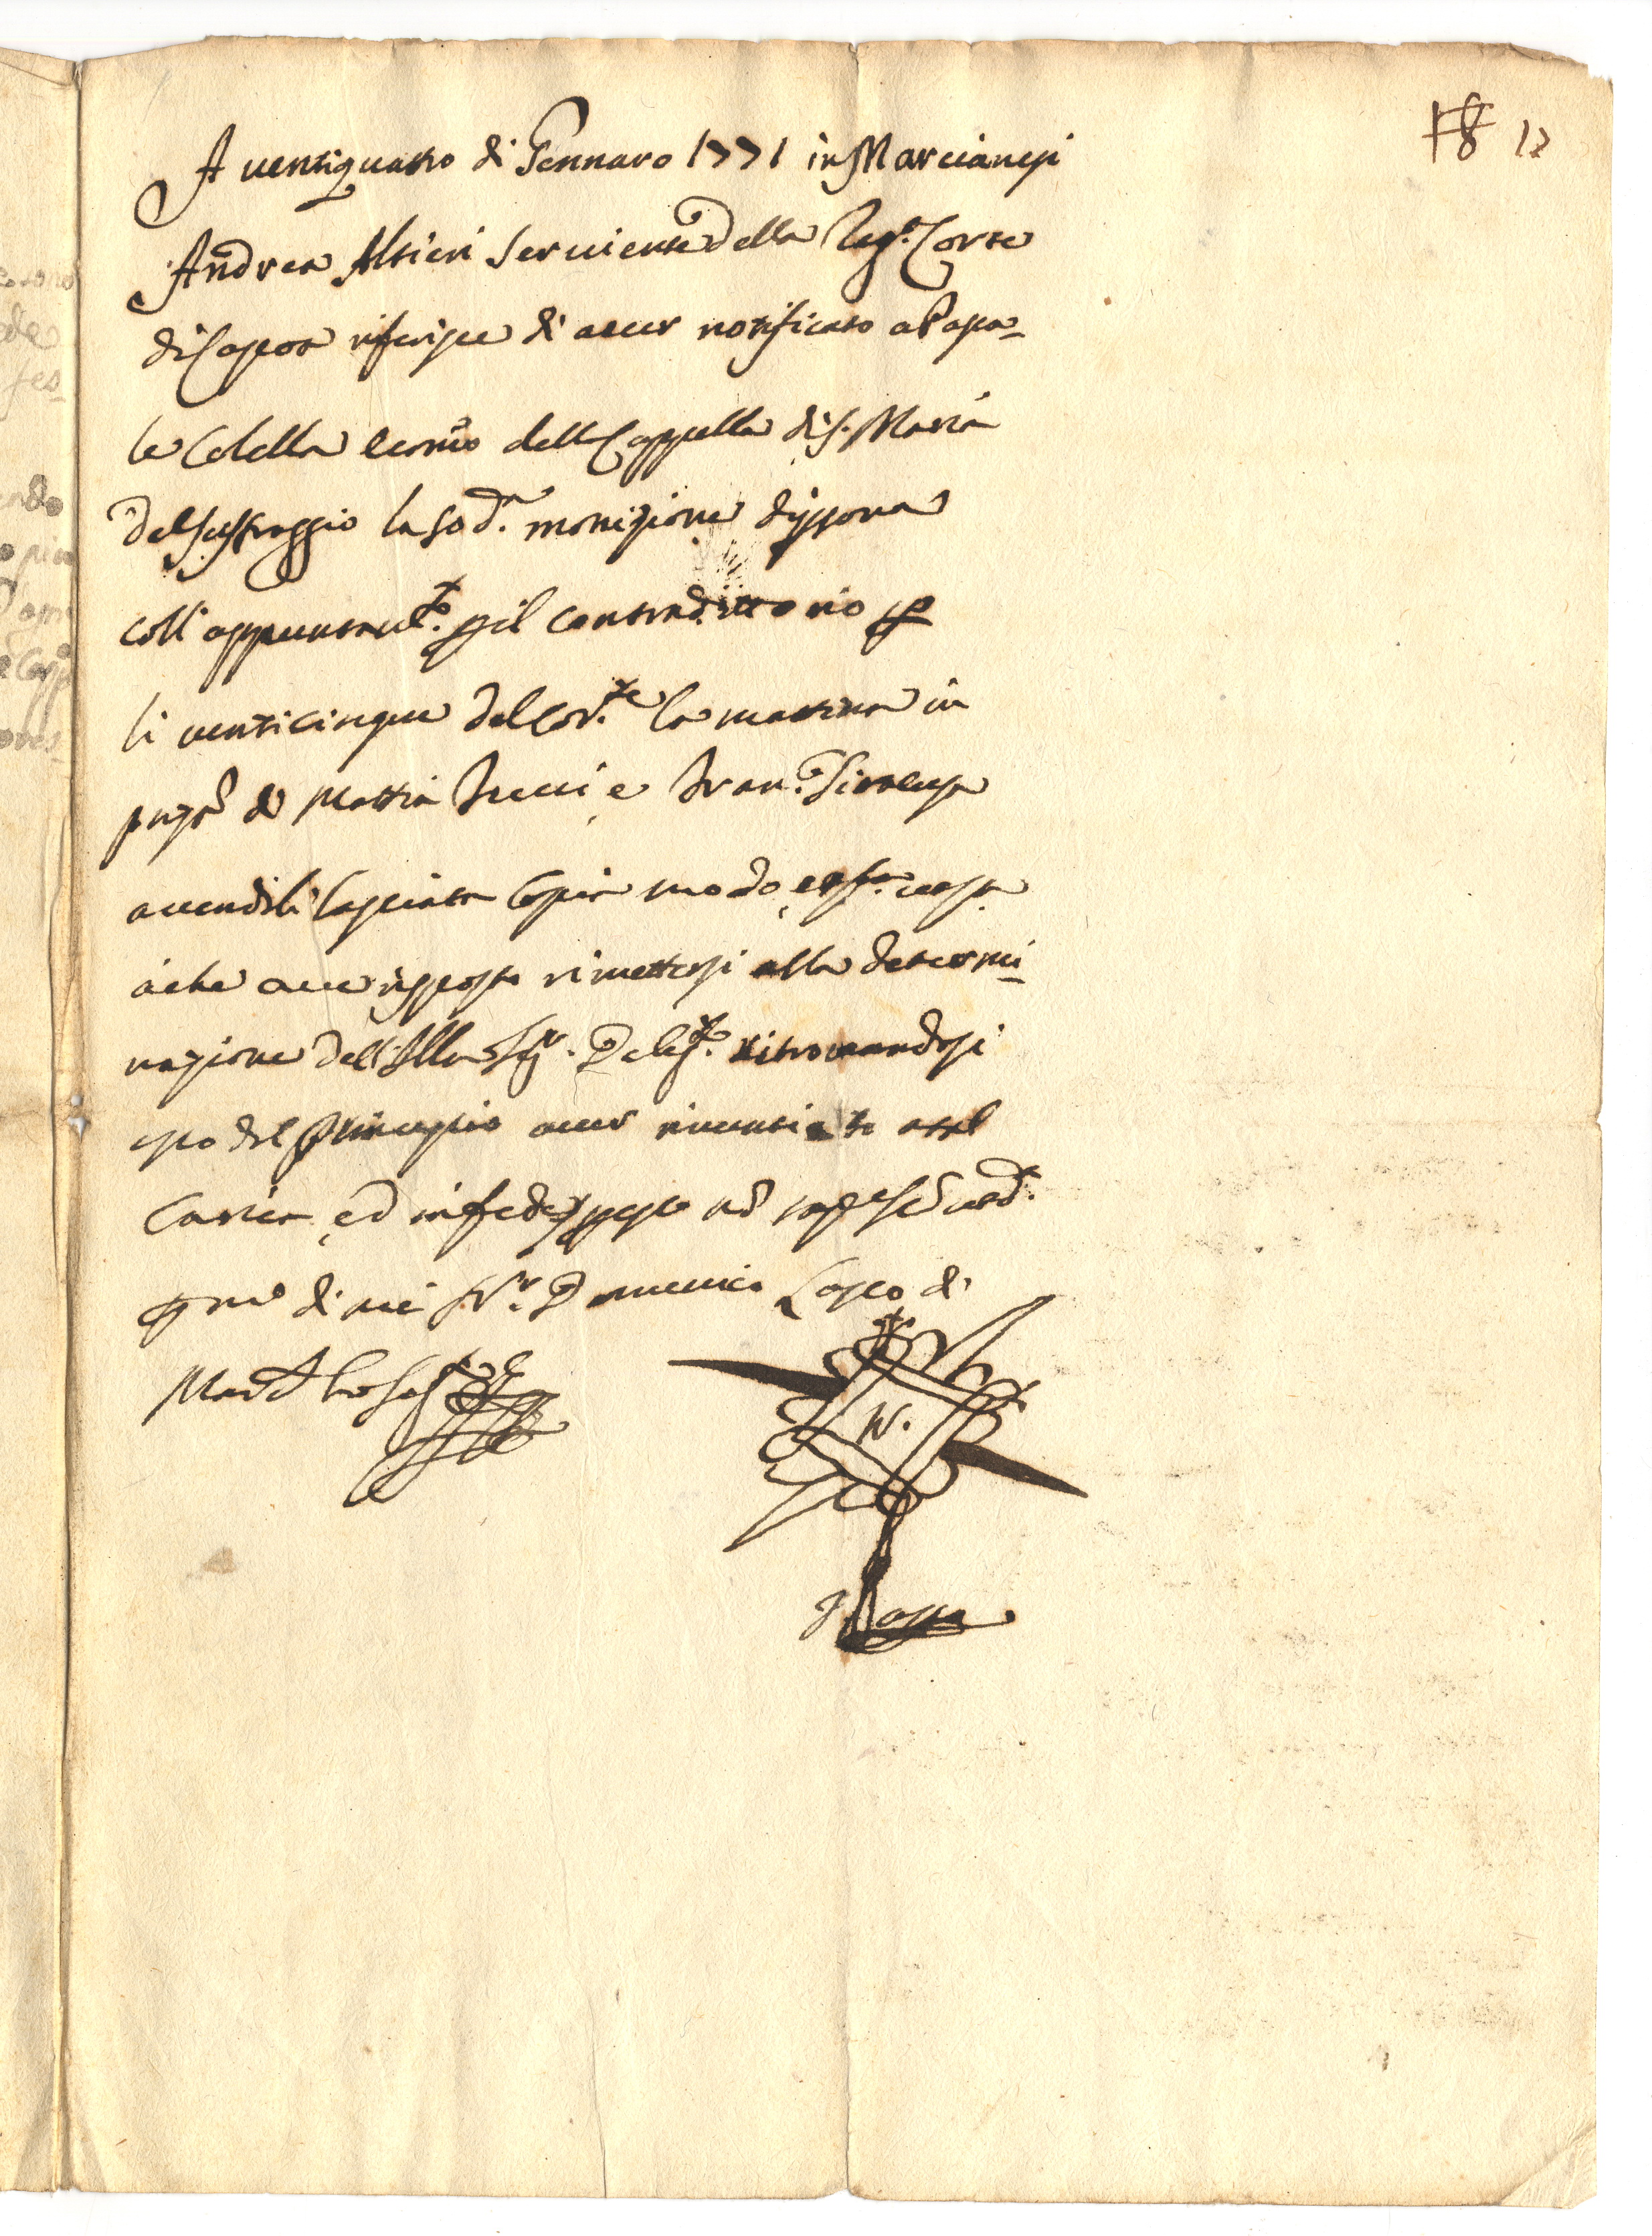 18 12
A ventiquatro di Gennaro 1771 in Marcianesi
Andrea Altieri serviente della Reg.a Corte
di Capoa riferisce di aver notificato a Pasca-
le Colella econ.o dell Cappella di S. Maria
del Suffraggio la sod.a monizione di sopra
coll'appuntam.to p il contradittorio p
li venticinque del cor.te la mattina in
pnza di Mattia Tucci e Fran.co
avendoli lasciata copia modo
a che ave risposto rimettersi alla determi-
nazione dell'Ill.mo Sig.r Deleg.to ritrovandosi
esso dal principio aver rinunciato a tal
carica, ed in fede
di me N.r Domenico Lasco di
Mar.d ho seg.to
N.